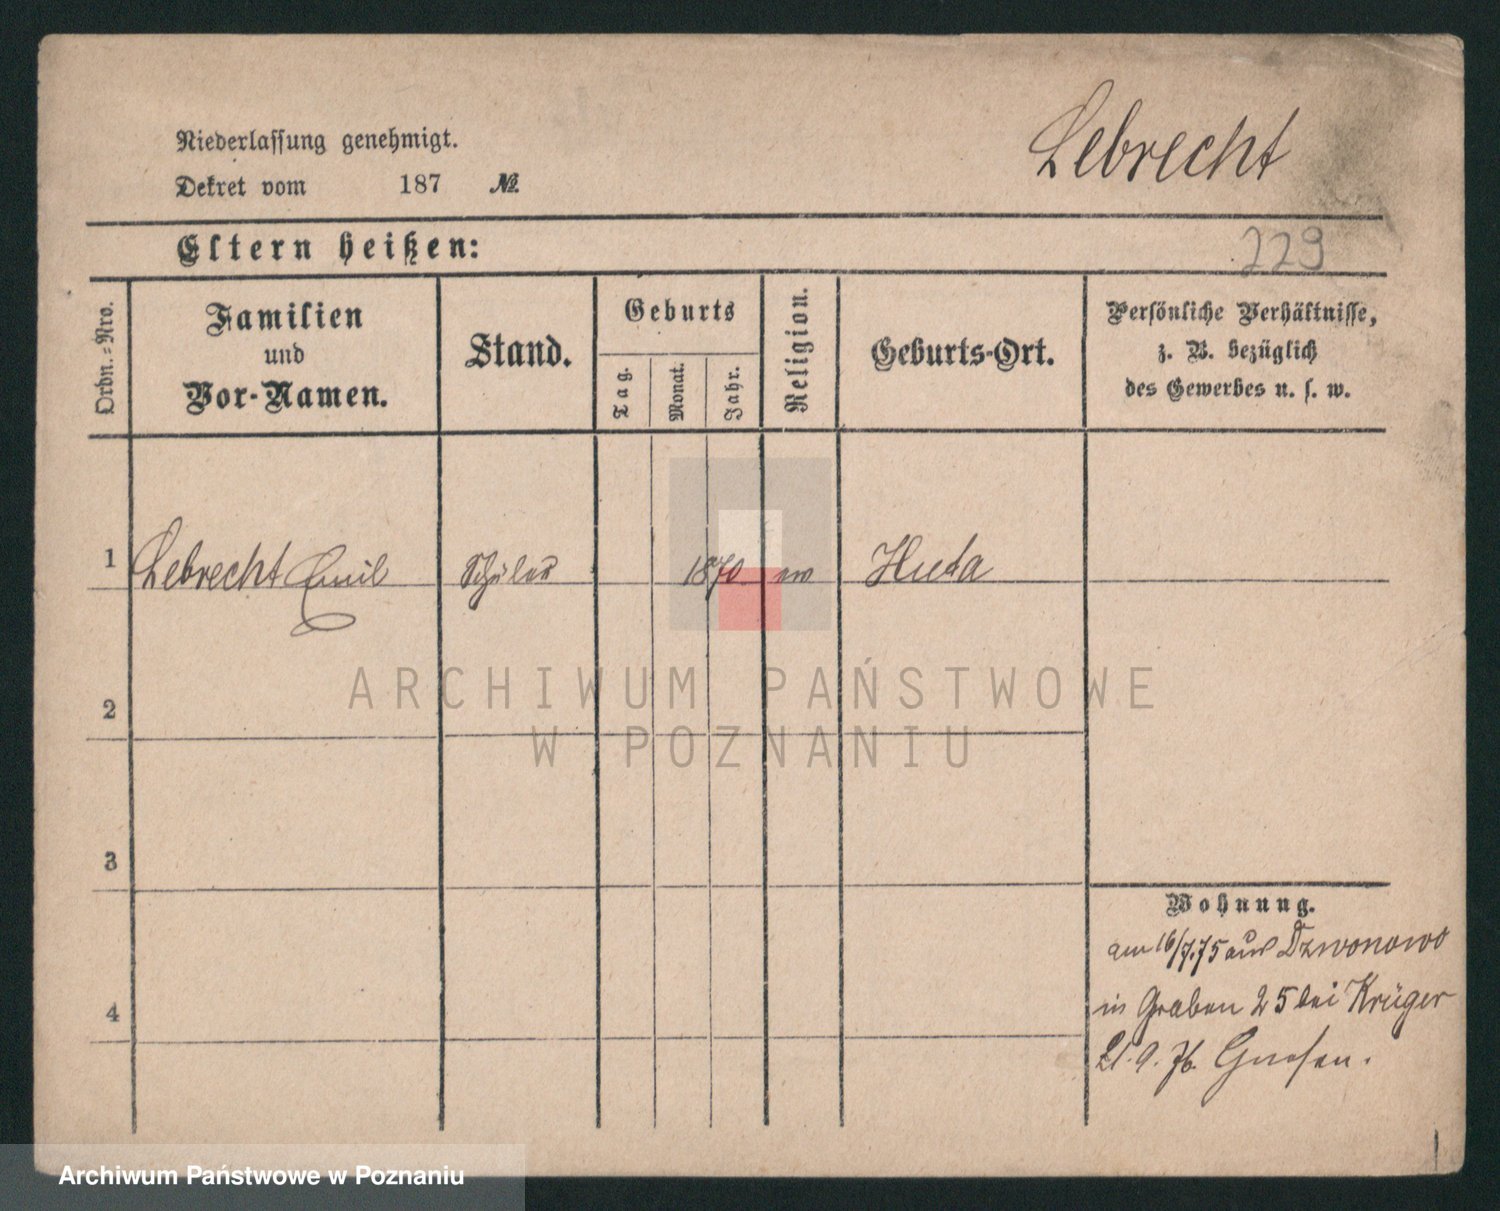 Lebrecht
Niederlassung genehmigt.
Dekret vom 187 №.
Eltern heißen:
229
Ordn.=Nro.
Familien
und
Vor-Namen.
Stand.
Geburts
Tag.
Monat.
Jahr.
Religion.
Geburts-Ort.
Persönliche Verhältnisse,
z. B. bezüglich
des Gewerbes u. s. w.
1 Lebrecht Emil Schüler 1870 Huta
2
3
4
Wohnung.
am 16/7.75 aus Dzwonowo
in Graben 25 bei Krüger
21. 9. 76. Gnesen.
ARCHIWUM PAŃSTWOWE
W POZNANIU
Archiwum Państwowe w Poznaniu